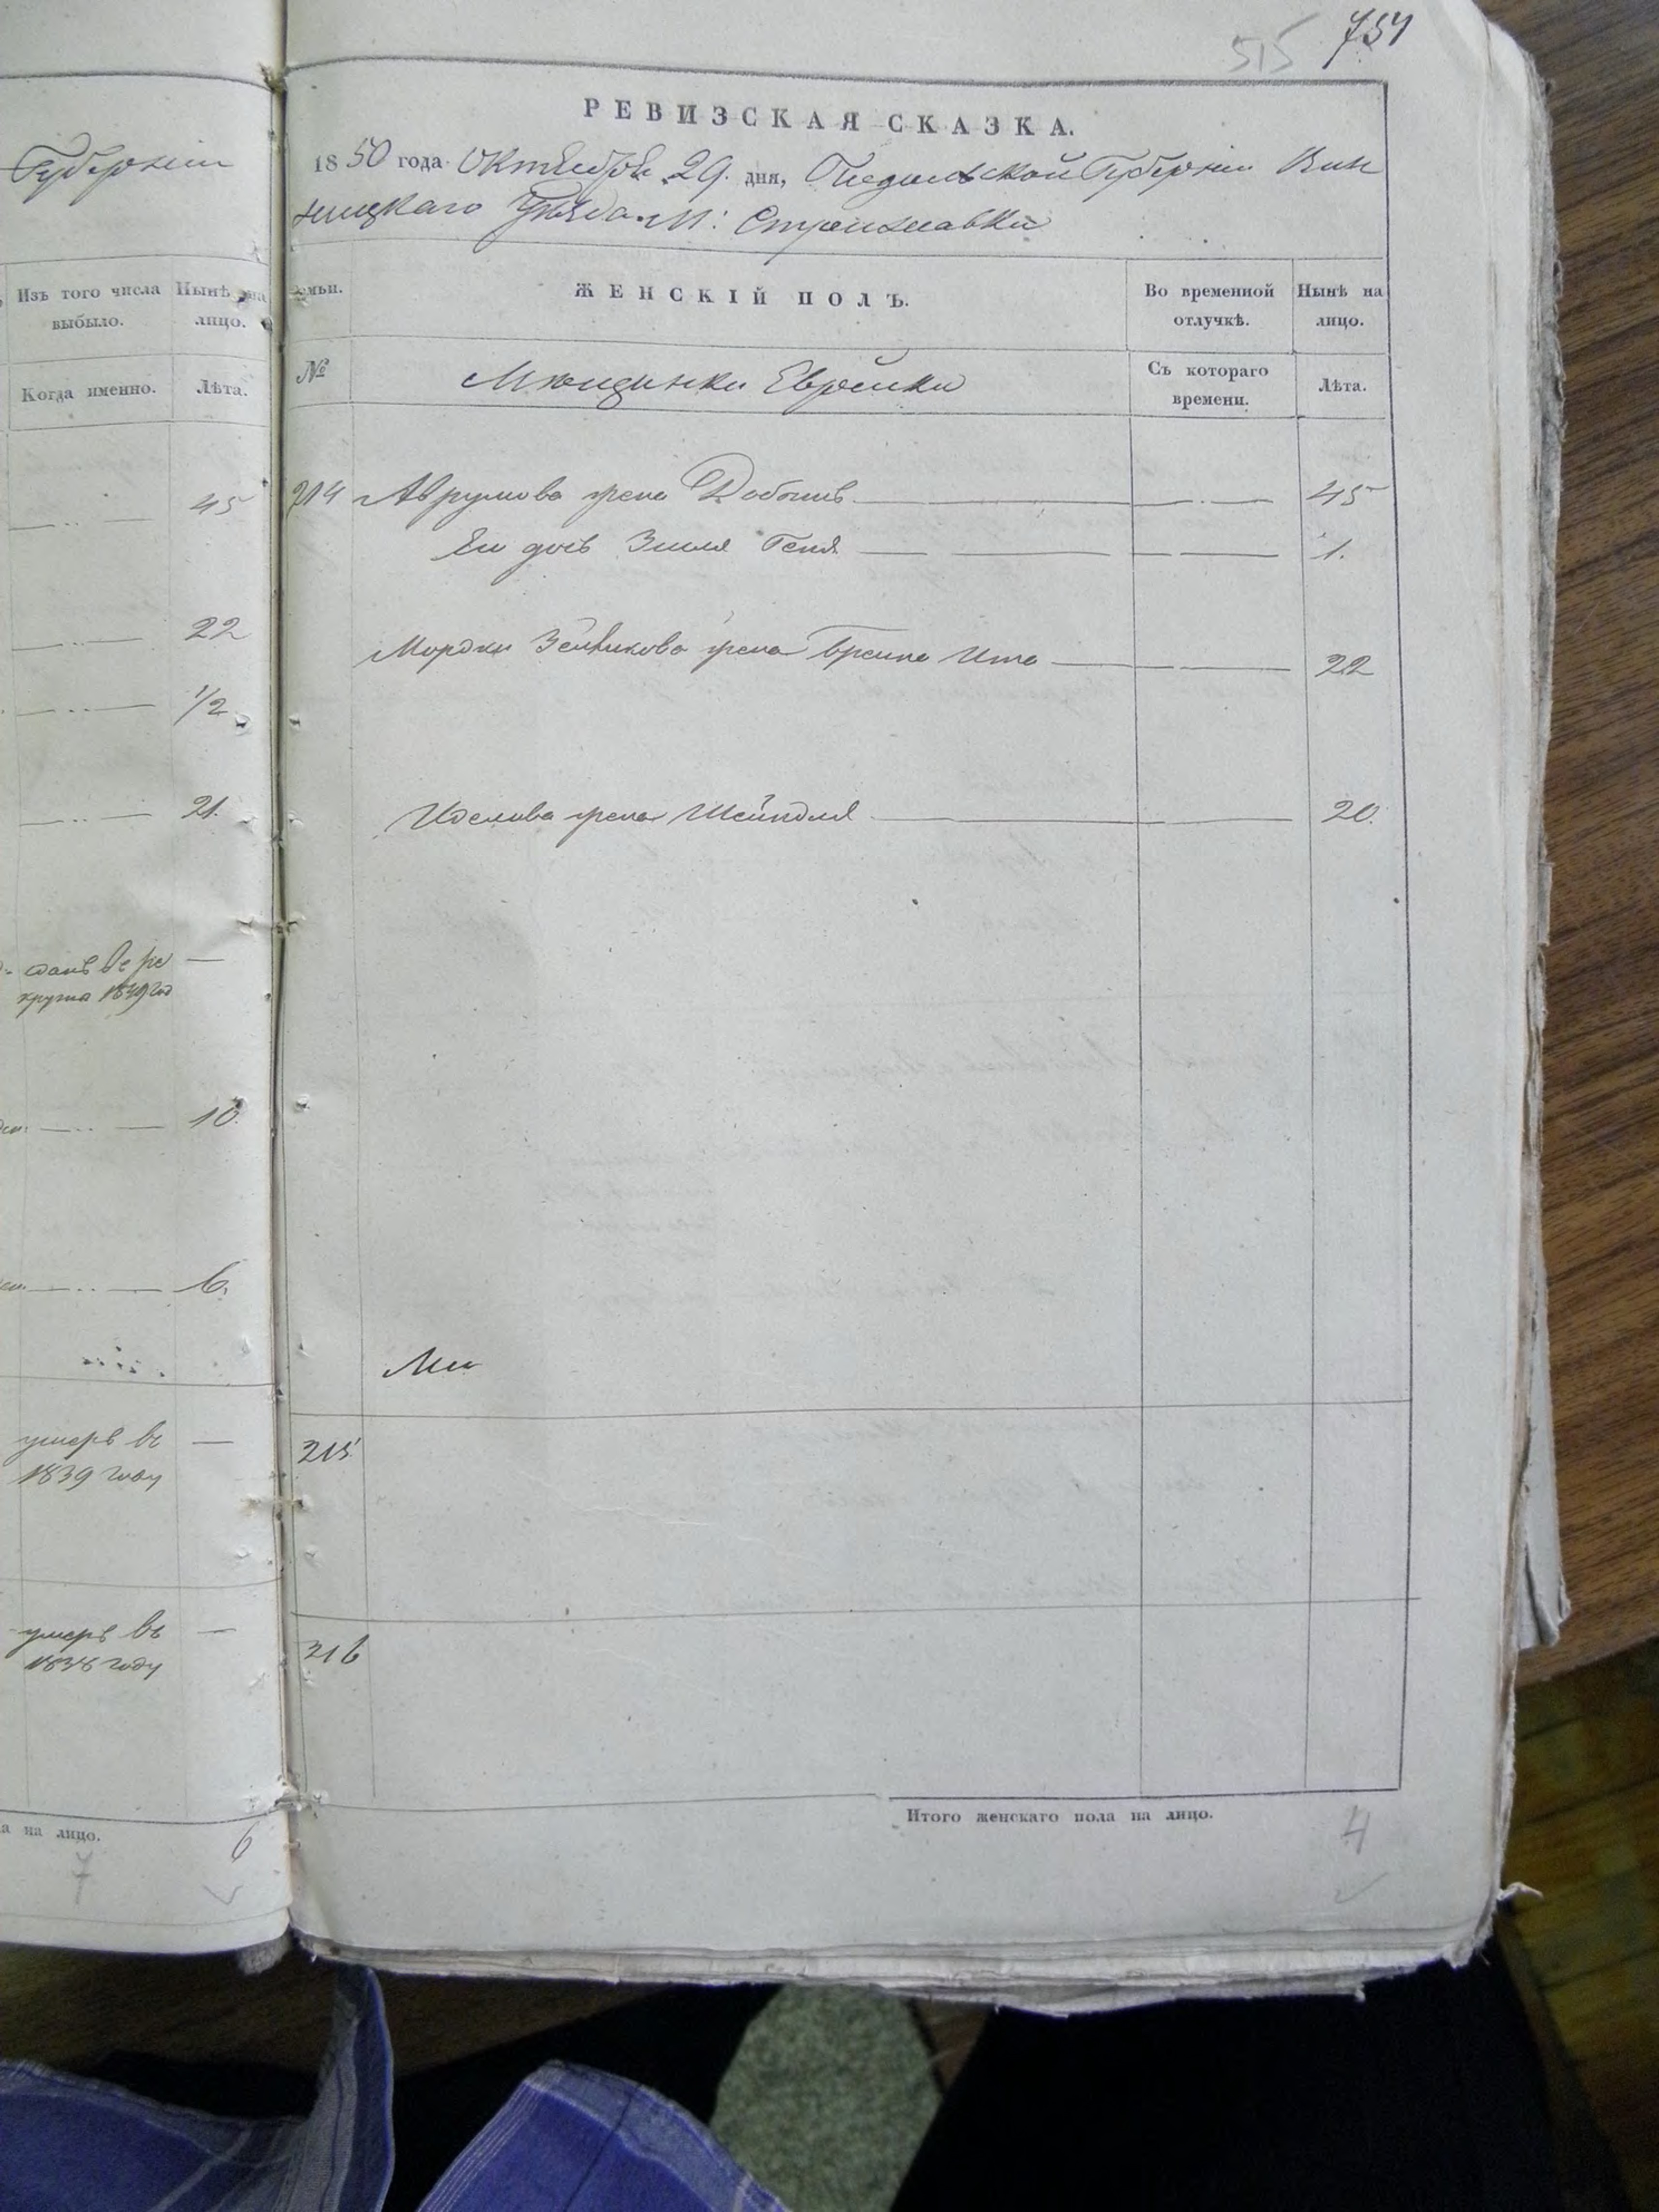 Губерніи
Изъ того числа выбыло.
Нынѣ на лицо.
Когда именно.
Лѣта.
45
22
1/2
21.
1839
10.
6.
умеръ въ
1839 году
умеръ въ
1838 году
на лицо.
6
7
515 757
РЕВИЗСКАЯ СКАЗКА.
1850 года Октября 29. дня, Подольской Губерніи Вин
ницкаго Уѣзда М: Стрижавки
ЖЕНСКІЙ ПОЛЪ.
Во временной отлучкѣ.
Нынѣ на лицо.
№
Мѣщанки Еврейки
Съ котораго времени.
Лѣта.
214 Аврумова жена Добышъ 45
Ея дочь Зисля Геня 1.
Мордки Зельмикова жена Бреина Ита 22
Иделова жена Шейндля 20.
Ми
215
216
Итого женскаго пола на лицо.
4